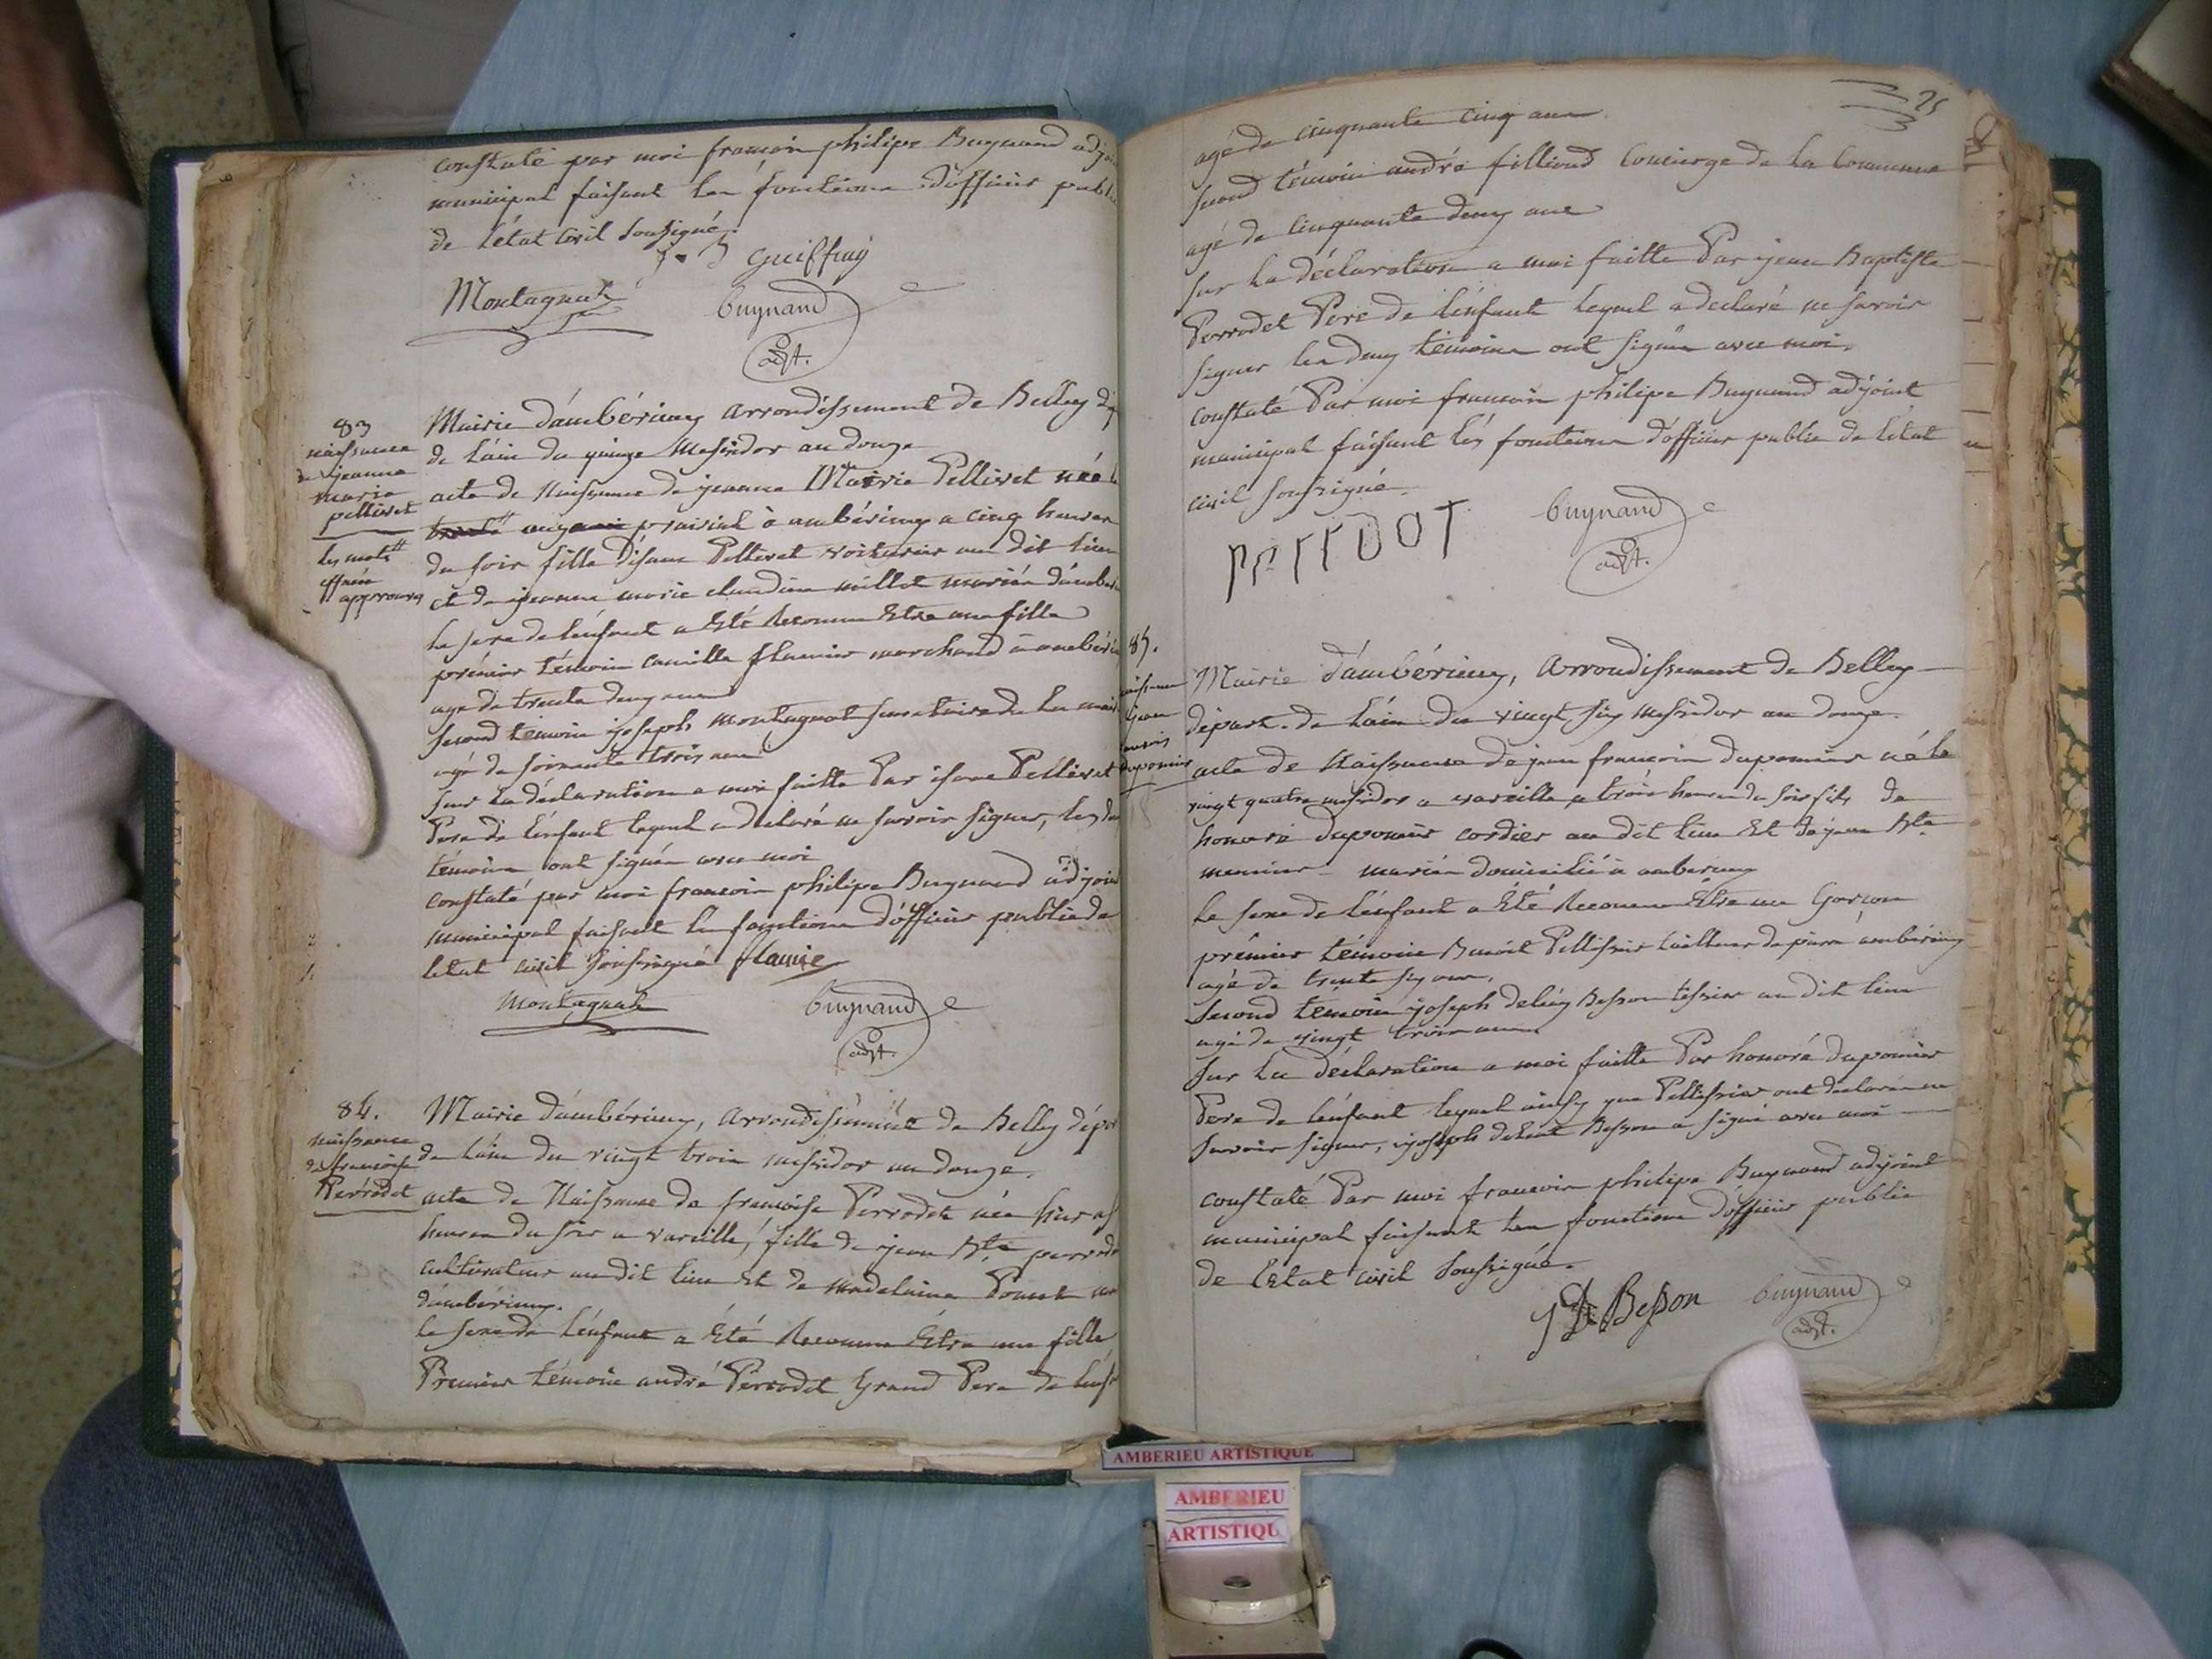 constaté par moi françois philipe Buynand adjoi
municipal faisant les fonctions d'officier publi
de l'état civil soussigné.
J. B Guiffray
Montagnat
Buynand
adjt.
83
naissance
de jeanne
marie
pellivet
les mots
effacés
approuvés
Mairie d'ambérieux arrondissement de Belley dép
de l'ain du quinze Messidor an douze
acte de Naissance de jeanne Marie Pellivet née l
prairial à ambérieux a cinq heures
du soir fille d'isaac Pellivet voiturier au dit lieu
et de jeanne marie claudine millet mariés d'ambé
le sexe de l'enfant a Eté Reconnu Etre une fille
prémier témoin camille flamier marchand a ambéri
agé de trente deux ans
second témoin joseph montagnat secretaire de la mair
agé de soixante trois ans
sur la déclaration a moi faitte Par isaac Pellivet
Pere de l'enfant lequel a déclaré ne savoir signer, les du
témoins ont signés avec moi
constaté par moi françois philipe Buynand adjoin
municipal faisant les fonctions d'officier public de
letat civil soussigné
Montagnat
Buynand
adjt.
84.
naissance
de françoise
Perrodet
Mairie d'ambérieux, arrondissement de Belley dépar
de l'ain du vingt trois messidor an douze.
acte de Naissance de françoise Perrodet née hier a
heures du soir a vareille, fille de jean Bte perrode
cultivateur au dit lieu Et de madelaine
d'ambérieux.
le sexe de l'enfant a Eté Reconnu Etre une fille
Premier témoin andré Perrodet Grand Pere de l'enf
25
agé de cinquante cinq ans.
second témoin andré filliond concierge de la commune
agé de cinquante deux ans
sur la déclaration a moi faitte Par jean Baptiste
Perrodet Pere de l'enfant lequel a declaré ne savoir
signer les deux témoins ont signés avec moi.
constaté Par moi françois philipe Buynand adjoint
municipal faisant les fonctions d'officier public de l'état
civil soussigné.
Buynand
adjt.
85.
naissance
jean
françois
duponier
Mairie d'ambérieux, arrondissement de Belley
départ. de l'ain du vingt six messidor an douze.
acte de Naissance de jean françois duponier né le
vingt quatre messidor a vareille a trois heures du soir fils de
honoré duponier cordier au dit lieu Et de jeanne Bte
meunier mariés domiciliés a ambérieux
le sexe de l'enfant a Eté Reconnu Etre un Garçon
prémier témoin Benoit Pellissier tailleur de pierre ambérieux
agé de trente six ans,
second temoin joseph Besson tessier au dit lieu
agé de vingt trois ans
sur la déclaration a moi faitte Par honoré duponier
Pere de l'enfant lequel ainsy que Pellissier ont déclarés ne
savoir signer, joseph Besson a signé avec moi
constaté Par moi françois philipe Buynand adjoint
municipal faisant les fonctions d'officier public
de lEtat civil soussigné.
Besson
Buynand
adjt.
AMBERIEU ARTISTIQUE
AMBERIEU
ARTISTIQU